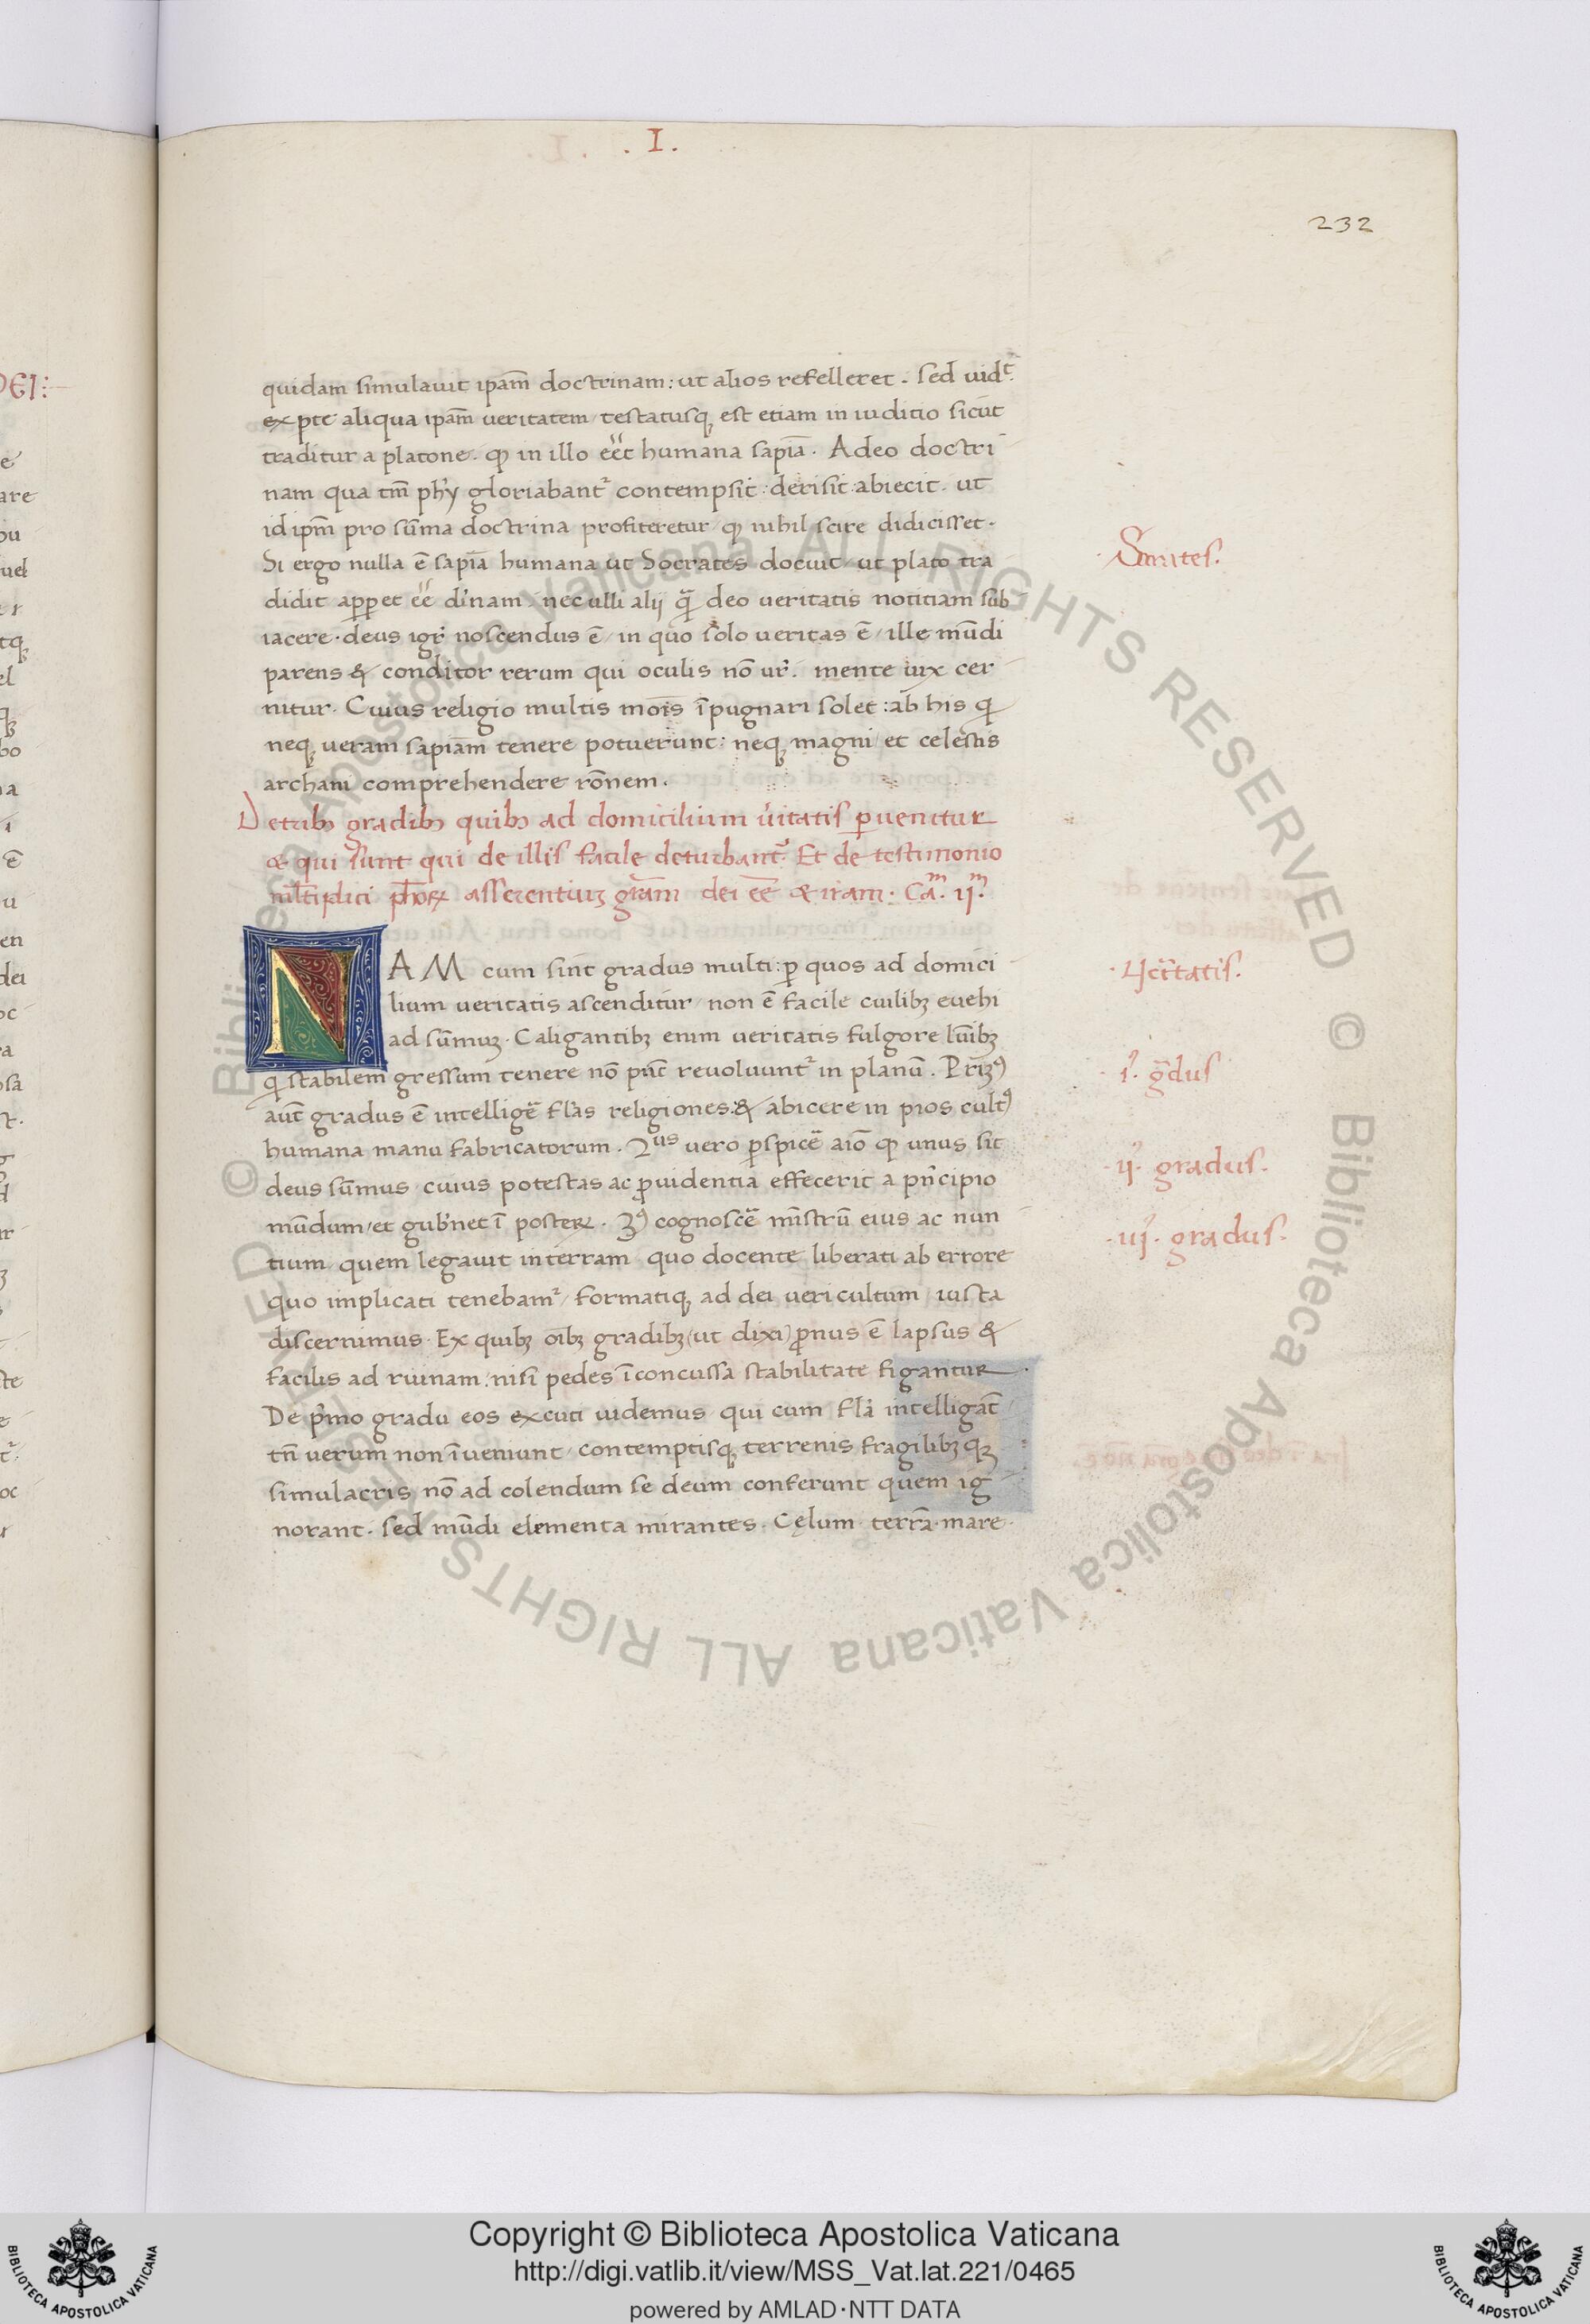 . I .
232
quidam simulauit ipam̄ doctrinam: ut alios refelleret. Sed uidt̄.
ex pte aliqua ipam̄ ueritatem / testatusq; est etiam in iuditio sicut
traditur a platone. ꝙ in illo eēt humana sapīa. Adeo doctri
nam qua tm̄ phy gloriabant᷑ contempsit: derisit: abiecit. ut
id ipm̄ pro sūma doctrina profiteretur / ꝙ nihil scire didicisset.
Si ergo nulla ē sapīa humana ut Socrates docuit / ut plato tra
didit apꝑet eē diuinam / nec ulli alij q̄ deo ueritatis notitiam sub
iacere. deus igr̄ noscendus ē / in quo solo ueritas ē / ille mūdi
parens & conditor rerum qui oculis nō ur̄. mente uix cer
nitur. Cuius religio multis mois̄ īpugnari solet: ab his ꝗ
neq; ueram sapiam̄ tenere potuerunt: neq; magni et celestis
archani comprehendere rōnem.
De trib; gradib; quib; ad domicilium ūitatis ꝑuenitur
& qui sunt qui de illis facile deturbant᷑. Et de testimonio
asserentiuꝫ grām dei eē & iram. Ca.m ij.m
Socrates.
NAM cum sint gradus multi: ꝑ quos ad domici
lium ueritatis ascenditur / non ē facile cuilibꝫ euehi
ad sūmuꝫ. Caligantibꝫ enim ueritatis fulgore lūibꝫ
ꝗ stabilem gressum tenere nō pn̄t reuoluunt᷑ in planū. Primꝰ
aut̄ gradus ē intelligē fl̄as religiones: & abicere in pios cultꝰ
humana manu fabricatorum. 2us uero ꝑspicē aiō ꝙ unus sit
deus sūmus cuius potestas ac ꝓuidentia effecerit a pn̄cipio
mūdum / et gub̄net ī posteꝝ. 3ꝰ cognoscē mīstrū eius ac nun
tium quem legauit in terram quo docente liberati ab errore
quo implicati tenebam᷑ / formatiq; ad dei ueri cultum iusta
discernimus. Ex quibꝫ oībꝫ gradibꝫ (ut dixi) ꝓnus ē lapsus &
facilis ad ruinam: nisi pedes īconcussa stabilitate figantur.
De pmo gradu eos excuti uidemus qui cum fl̄a intelligāt
tn̄ uerum non īueniunt / contemptisq; terrenis fragilibꝫq;
simulacris nō ad colendum se deum conferunt quem ig
norant. sed mūdi elementa mirantes. Cęlum terrā mare.
i. ḡdus
ij. gradus.
iij. gradus.
Copyright © Biblioteca Apostolica Vaticana
http://digi.vatlib.it/view/MSS_Vat.lat.221/0465
powered by AMLAD·NTT DATA
BIBLIOTECA APOSTOLICA VATICANA
BIBLIOTECA APOSTOLICA VATICANA
© Biblioteca Apostolica Vaticana ALL RIGHTS RESERVED
© Biblioteca Apostolica Vaticana ALL RIGHTS RESERVED